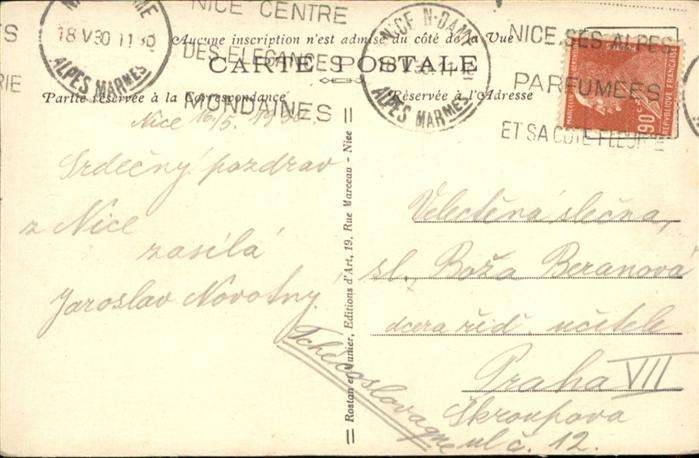 NICE CENTRE
DES ELEGANCES
MONDAINES
18 V 30 11 30
ALPES MARMES
NICE N. DAME
ALPES MARMES
NICE SES ALPES
PARFUMEES
ET SA COTE FLEURIE
RIE
90c
REPVBLIQVE FRANÇAISE
Aucune inscription n'est admise du côté de la Vue
CARTE POSTALE
Partie réservée à la Correspondance
Réservée à l'Adresse
Nice 16/5. 1930.
Srdečný pozdrav
z Nice
zasílá
Jaroslav Novotny.
Tchécoslovaquie
Rostan et Munier, Editions d'Art, 19, Rue Marceau - Nice
Velectěná slečna,
sl. Boža Beranová
dcera říd. učitele
Praha VII
Škroupova
ul č. 12.